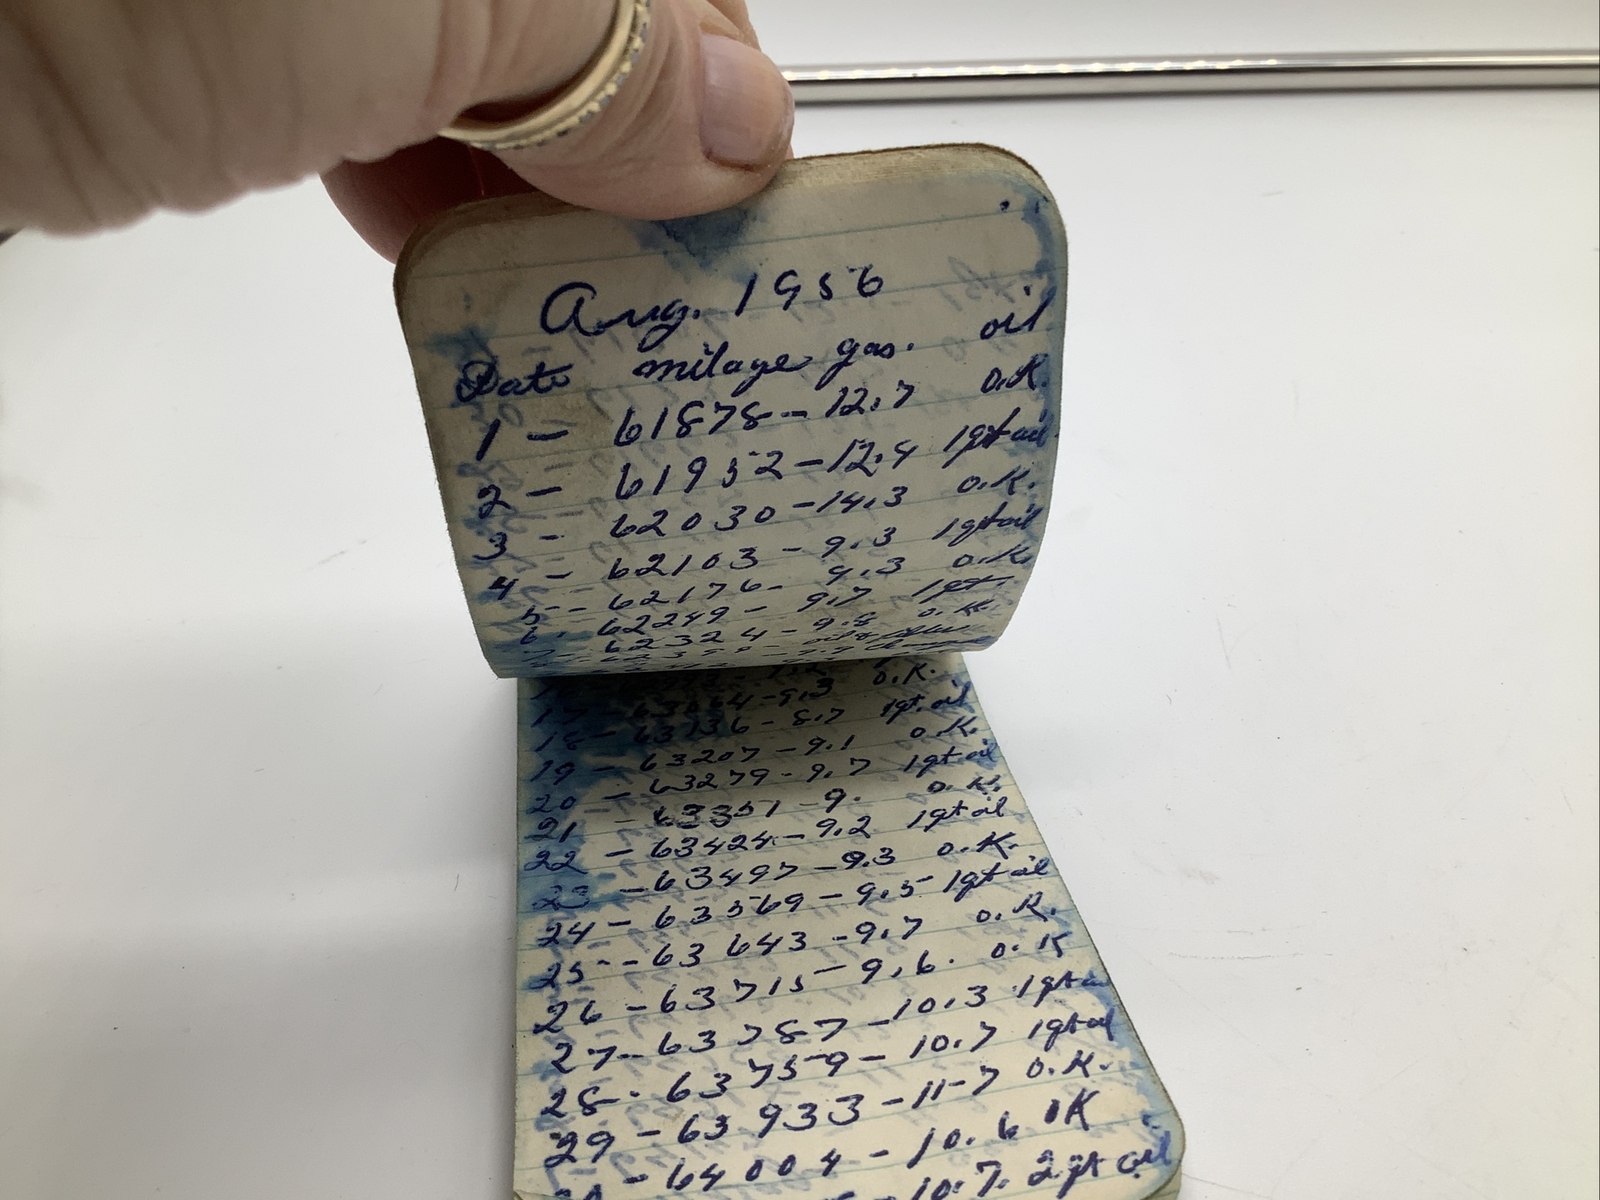 Aug. 1956
Date milage gas. oil
1 - 61878 - 12.7 O.K.
2 - 61952 - 12.4 1qt oil
3 - 62030 - 14.3 O.K.
4 - 62103 - 9.3 1qt oil
5 - 62176 - 9.3 O.K.
6. 62249 - 9.7 1qt.
7. 62324 - 9.8 O.K.
17 - 63064 - 9.3 O.K.
18 - 63136 - 8.7 1qt. oil
19 - 63207 - 9.1 O.K.
20 - 63279 - 9.7 1qt oil
21 - 63351 - 9. O.K.
22 - 63424 - 9.2 1qt oil
23 - 63497 - 9.3 O.K.
24 - 63569 - 9.5 1qt oil
25 - 63643 - 9.7 O.K.
26 - 63715 - 9.6. O.K
27 - 63787 - 10.3 1qt
28 - 63759 - 10.7 1qt oil
29 - 63933 - 11-7 O.K.
- 64004 - 10.6 OK
- 10.7. 2qt oil